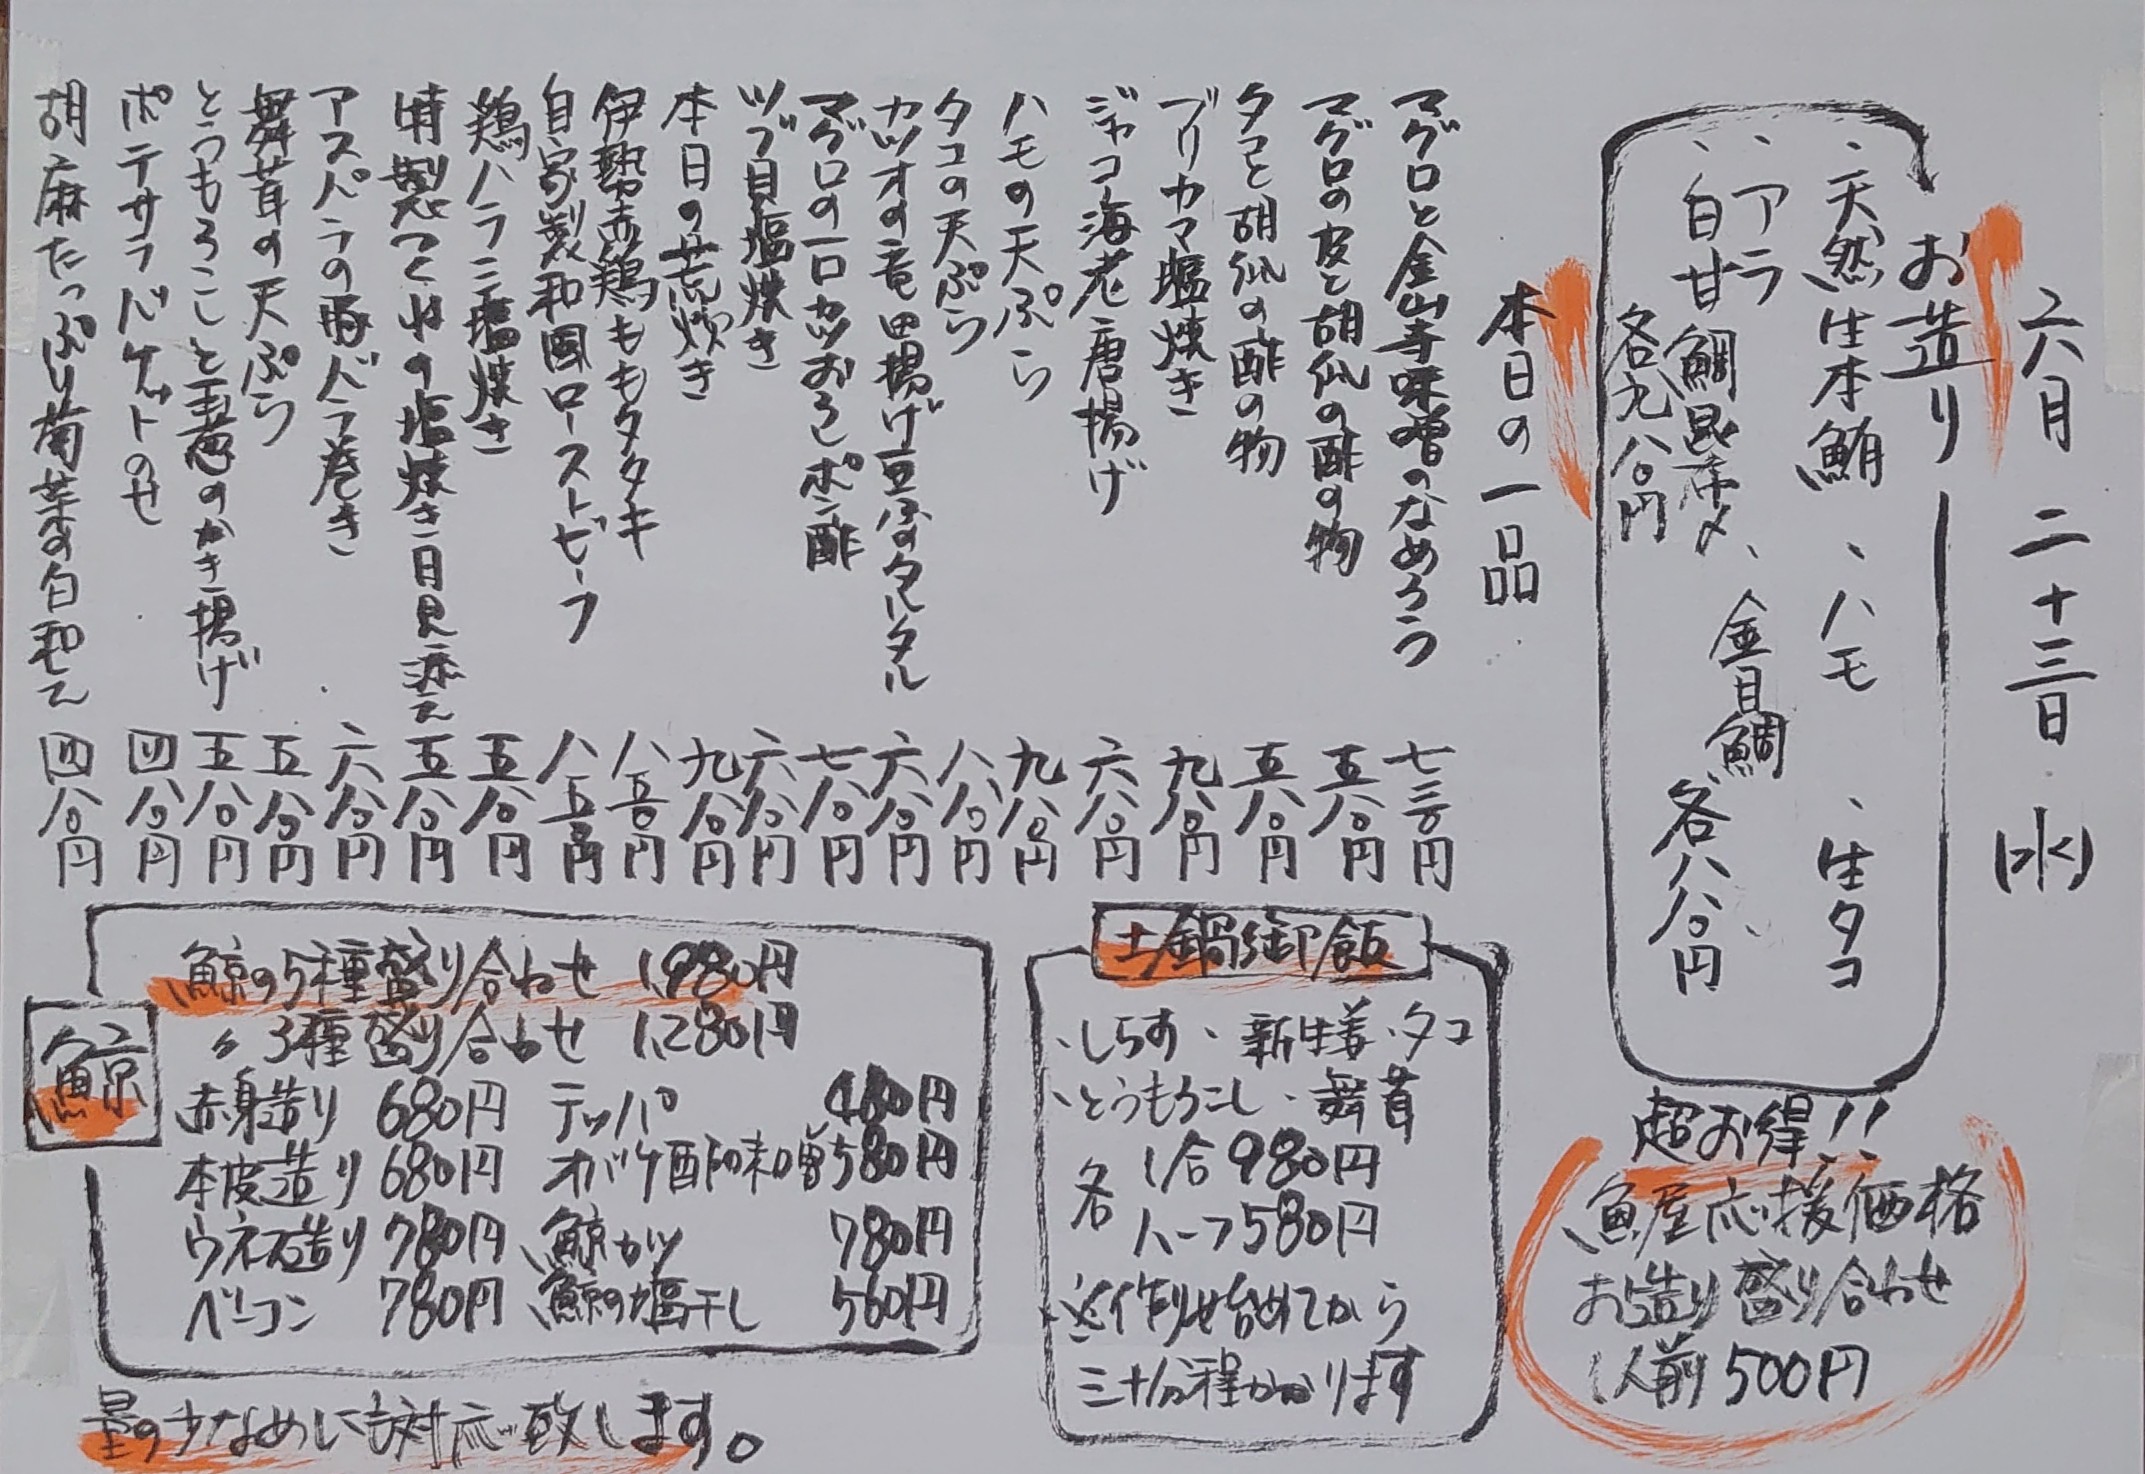 六月二十三日(水)
お造り
、天然生本鮪、ハモ、生タコ
、アラ
、白甘鯛昆布〆、金目鯛
各九八〇円
各八八〇円
本日の一品
マグロと金山寺味噌のなめろう 七三〇円
マグロの皮と胡瓜の酢の物 五八〇円
タコと胡瓜の酢の物 五八〇円
ブリカマ塩焼き 九八〇円
ジャコ海老唐揚げ 六八〇円
ハモの天ぷら 九八〇円
タコの天ぷら 八八〇円
カツオの竜田揚げ豆ふのタルタル 六八〇円
マグロの一口カツおろしポン酢 七八〇円
ツブ貝塩焼き 六八〇円
本日の荒炊き 九八〇円
伊勢赤鶏ももタタキ 八五〇円
自家製和風ローストビーフ 八五〇円
鶏ハラミ塩焼き 五八〇円
特製つくねの塩焼き月見添え 五八〇円
アスパラの豚バラ巻き 六八〇円
舞茸の天ぷら 五八〇円
とうもろこしと玉葱のかき揚げ 五八〇円
ポテサラバケットのせ 四八〇円
胡麻たっぷり菊菜の白和え 四八〇円
超お得!!
魚屋応援価格
お造り盛り合わせ
1人前500円
土鍋御飯
、しらす、新生姜、タコ
、とうもろこし、舞茸
各
1合980円
ハーフ580円
※作り始めてから
三十分程かかります
鯨
鯨の5種盛り合わせ 1,980円
〃3種盛り合わせ 1,280円
赤身造り 680円 テッパ 480円
本皮造り 680円 オバケ酢味噌 580円
ウネス造り 780円 鯨カツ 780円
ベーコン 780円 鯨の塩干し 560円
量の少なめにも対応致します。